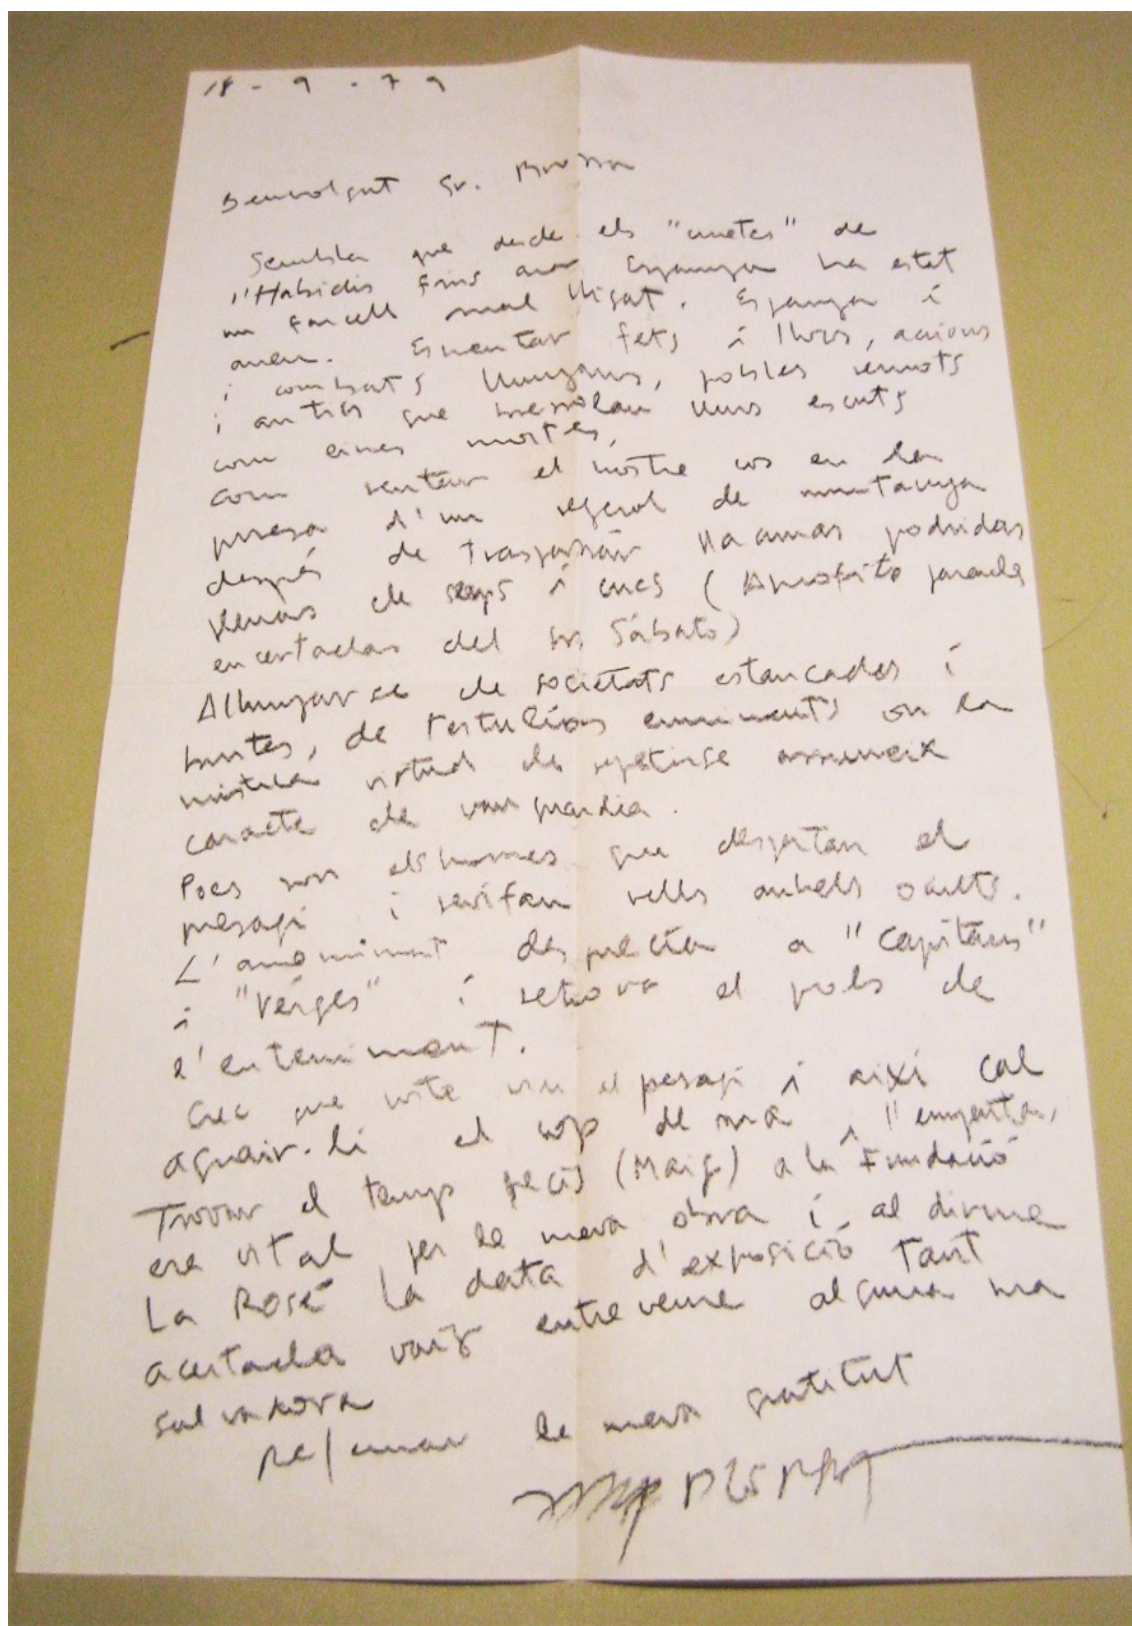 18 - 9 - 79
Benvolgut Sr. Brossa
Sembla que desde els "cunetes" de
l'Habidis fins ara Espanya ha estat
un farcell mal lligat. Espanya i
anem. Esmentar fets i llocs, accions
i combats llunyans, pobles remots
i antics que tremolau uns escuts
com eines mortes,
com sentau el nostre cos en la
puresa d'un regerol de muntanya
després de traspassar
plenas de serps i cucs (Aprofito paraula
encertadas del Sr. Sábato)
Allunyarse de societats estancades i
brutes, de tertulias on la
mistica virtud de repetirse
caracte de vanguardia.
Pocs son els homes que despertan el
presagi i revifan vells anhels ocults.
L'anomimat desprecia a "Capitans"
i "Vérges" i retrova el pols de
l'enteniment.
Crec que voste viu el presagi i aixi cal
agrair-li el cop de ma i l'empenta,
Trovar el temps precis (Maig) a la Fundació
era vital per la meva obra i al dirme
La Rosé la data d'exposició tant
acertada vaig entreveure alguna ma
salvadora
la meva gratitut